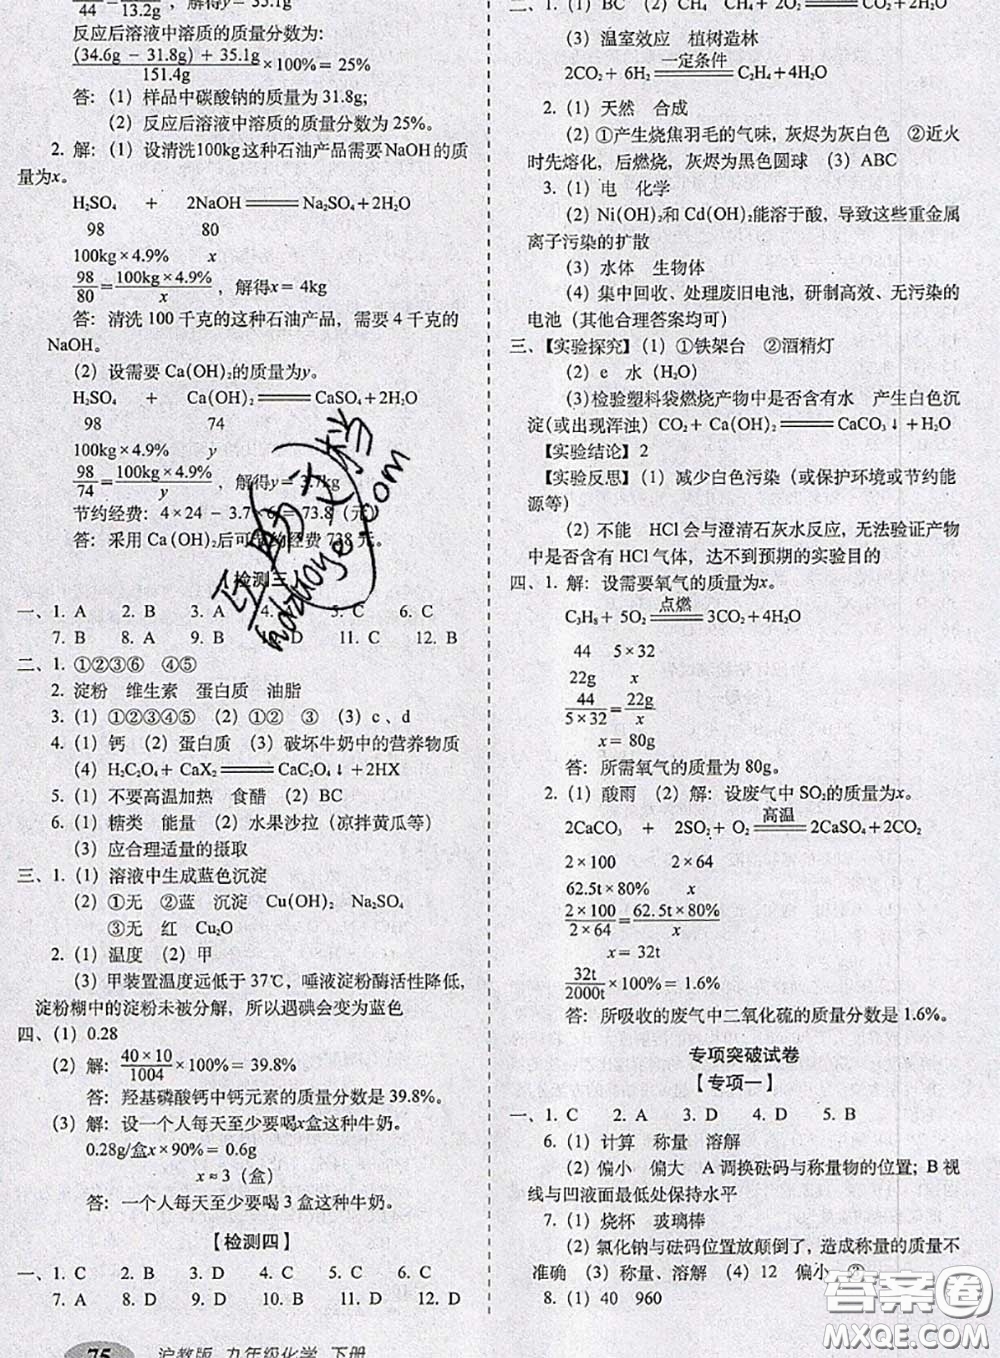 44 13.2g ，解得y = 35.1g
反应后溶液中溶质的质量分数为:
(34.6g − 31.8g) + 35.1g / 151.4g ×100% = 25%
答:（1）样品中碳酸钠的质量为31.8g;
（2）反应后溶液中溶质的质量分数为25%。
2. 解:（1）设清洗100kg这种石油产品需要NaOH的质
量为x。
H₂SO₄ + 2NaOH ═══ Na₂SO₄ + 2H₂O
98 80
100kg × 4.9% x
98/80 = 100kg × 4.9%/x ，解得x = 4kg
答: 清洗 100 千克的这种石油产品，需要 4 千克的
NaOH。
（2）设需要 Ca(OH)₂的质量为y。
H₂SO₄ + Ca(OH)₂ ═══ CaSO₄ + 2H₂O
98 74
100kg × 4.9% y
98/74 = 100kg × 4.9%/y ，解得y = 3.7kg
节约经费: 4 × 24 − 3.7 × 6 = 73.8（元）
答: 采用 Ca(OH)₂后可节约经费 738 元。
检测三
一、1. A 2. B 3. A 4. 5. C 6. C
7. B 8. A 9. B 10. D 11. C 12. B
二、1. ①②③⑥ ④⑤
2. 淀粉 维生素 蛋白质 油脂
3.（1）①②③④⑤（2）①② ③（3）c、d
4.（1）钙（2）蛋白质（3）破坏牛奶中的营养物质
（4）H₂C₂O₄ + CaX₂ ═══ CaC₂O₄↓ + 2HX
5.（1）不要高温加热 食醋（2）BC
6.（1）糖类 能量（2）水果沙拉（凉拌黄瓜等）
（3）应合理适量的摄取
三、1.（1）溶液中生成蓝色沉淀
（2）①无 ②蓝 沉淀 Cu(OH)₂ Na₂SO₄
③无 红 Cu₂O
2.（1）温度（2）甲
（3）甲装置温度远低于 37℃，唾液淀粉酶活性降低,
淀粉糊中的淀粉未被分解，所以遇碘会变为蓝色
四、（1）0.28
（2）解: 40 × 10/1004 × 100% = 39.8%
答: 羟基磷酸钙中钙元素的质量分数是 39.8%。
（3）解: 设一个人每天至少要喝x盒这种牛奶。
0.28g/盒x × 90% = 0.6g
x ≈ 3（盒）
答: 一个人每天至少要喝 3 盒这种牛奶。
【检测四】
一、1. C 2. B 3. D 4. B 5. D 6. C
7. A 8. D 9. D 10. A 11. D 12. D
75 沪教版 九年级化学 下册
二、1.（1）BC（2）CH₄ CH₄ + 2O₂ ═══ CO₂ + 2H₂O
（3）温室效应 植树造林
2CO₂ + 6H₂ ═一定条件═ C₂H₄ + 4H₂O
2.（1）天然 合成
（2）①产生烧焦羽毛的气味，灰烬为灰白色 ②近火
时先熔化，后燃烧，灰烬为黑色圆球（3）ABC
3.（1）电 化学
（2）Ni(OH)₂和 Cd(OH)₂能溶于酸，导致这些重金属
离子污染的扩散
（3）水体 生物体
（4）集中回收、处理废旧电池，研制高效、无污染的
电池（其他合理答案均可）
三、【实验探究】（1）①铁架台 ②酒精灯
（2）e 水（H₂O）
（3)检验塑料袋燃烧产物中是否含有水 产生白色沉
淀（或出现浑浊）CO₂ + Ca(OH)₂ ═══ CaCO₃↓ + H₂O
【实验结论】2
【实验反思】（1）减少白色污染（或保护环境或节约能
源等）
（2）不能 HCl 会与澄清石灰水反应，无法验证产物
中是否含有 HCl 气体，达不到预期的实验目的
四、1. 解: 设需要氧气的质量为x。
C₃H₈ + 5O₂ ═点燃═ 3CO₂ + 4H₂O
44 5 × 32
22g x
44/5 × 32 = 22g/x
x = 80g
答: 所需氧气的质量为 80g。
2.（1）酸雨（2）解: 设废气中 SO₂的质量为x。
2CaCO₃ + 2SO₂ + O₂ ═高温═ 2CaSO₄ + 2CO₂
2 × 100 2 × 64
62.5t × 80% x
2 × 100/2 × 64 = 62.5t × 80%/x
x = 32t
32t/2000t × 100% = 1.6%
答: 所吸收的废气中二氧化硫的质量分数是 1.6%。
专项突破试卷
【专项一】
一、1. C 2. A 3. D 4. D 5. B
6.（1）计算 称量 溶解
（2）偏小 偏大 A 调换砝码与称量物的位置; B 视
线与凹液面最低处保持水平
7.（1）烧杯 玻璃棒
（2）氯化钠与砝码位置放颠倒了, 造成称量的质量不
准确（3）称量、溶解（4）12 偏小 ②
8.（1）40 960
答案圈
MXQE.COM